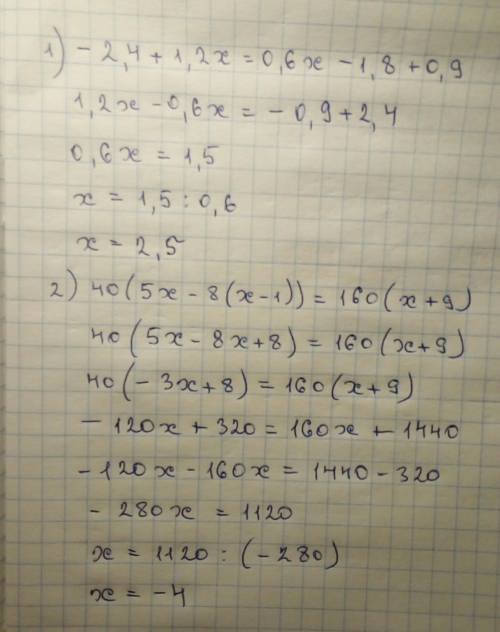 1) - 2,4 + 1,2x = 0,6x - 1,8 + 0,9
1,2x - 0,6x = - 0,9 + 2,4
0,6x = 1,5
x = 1,5 : 0,6
x = 2,5
2) 40(5x - 8(x-1)) = 160(x+9)
40(5x - 8x+8) = 160(x+9)
40(- 3x+8) = 160(x+9)
- 120x + 320 = 160x + 1440
- 120x - 160x = 1440 - 320
- 280x = 1120
x = 1120 : (-280)
x = -4